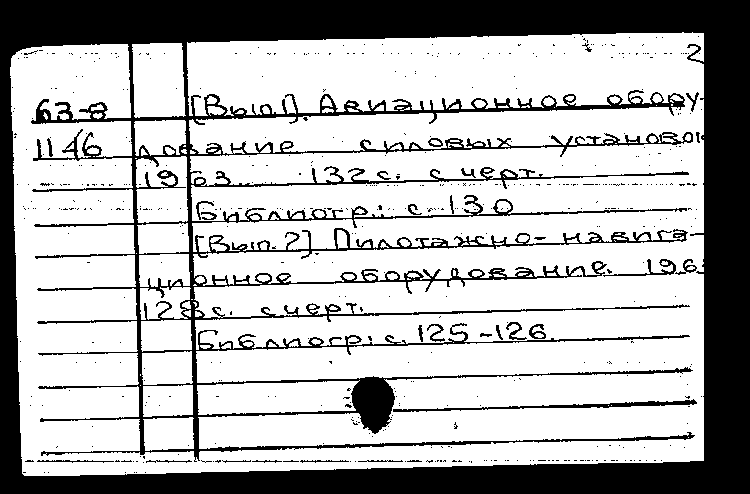 2
63-8 [Вып 1]. Авиационное обору-
1146 дование силовых установок
1963 132 с. с черт.
Библиогр.: с. 130
[Вып. 2]. Пилотажно-навига-
ционное оборудование. 1963
128 с. с черт.
Библиогр: с. 125-126.